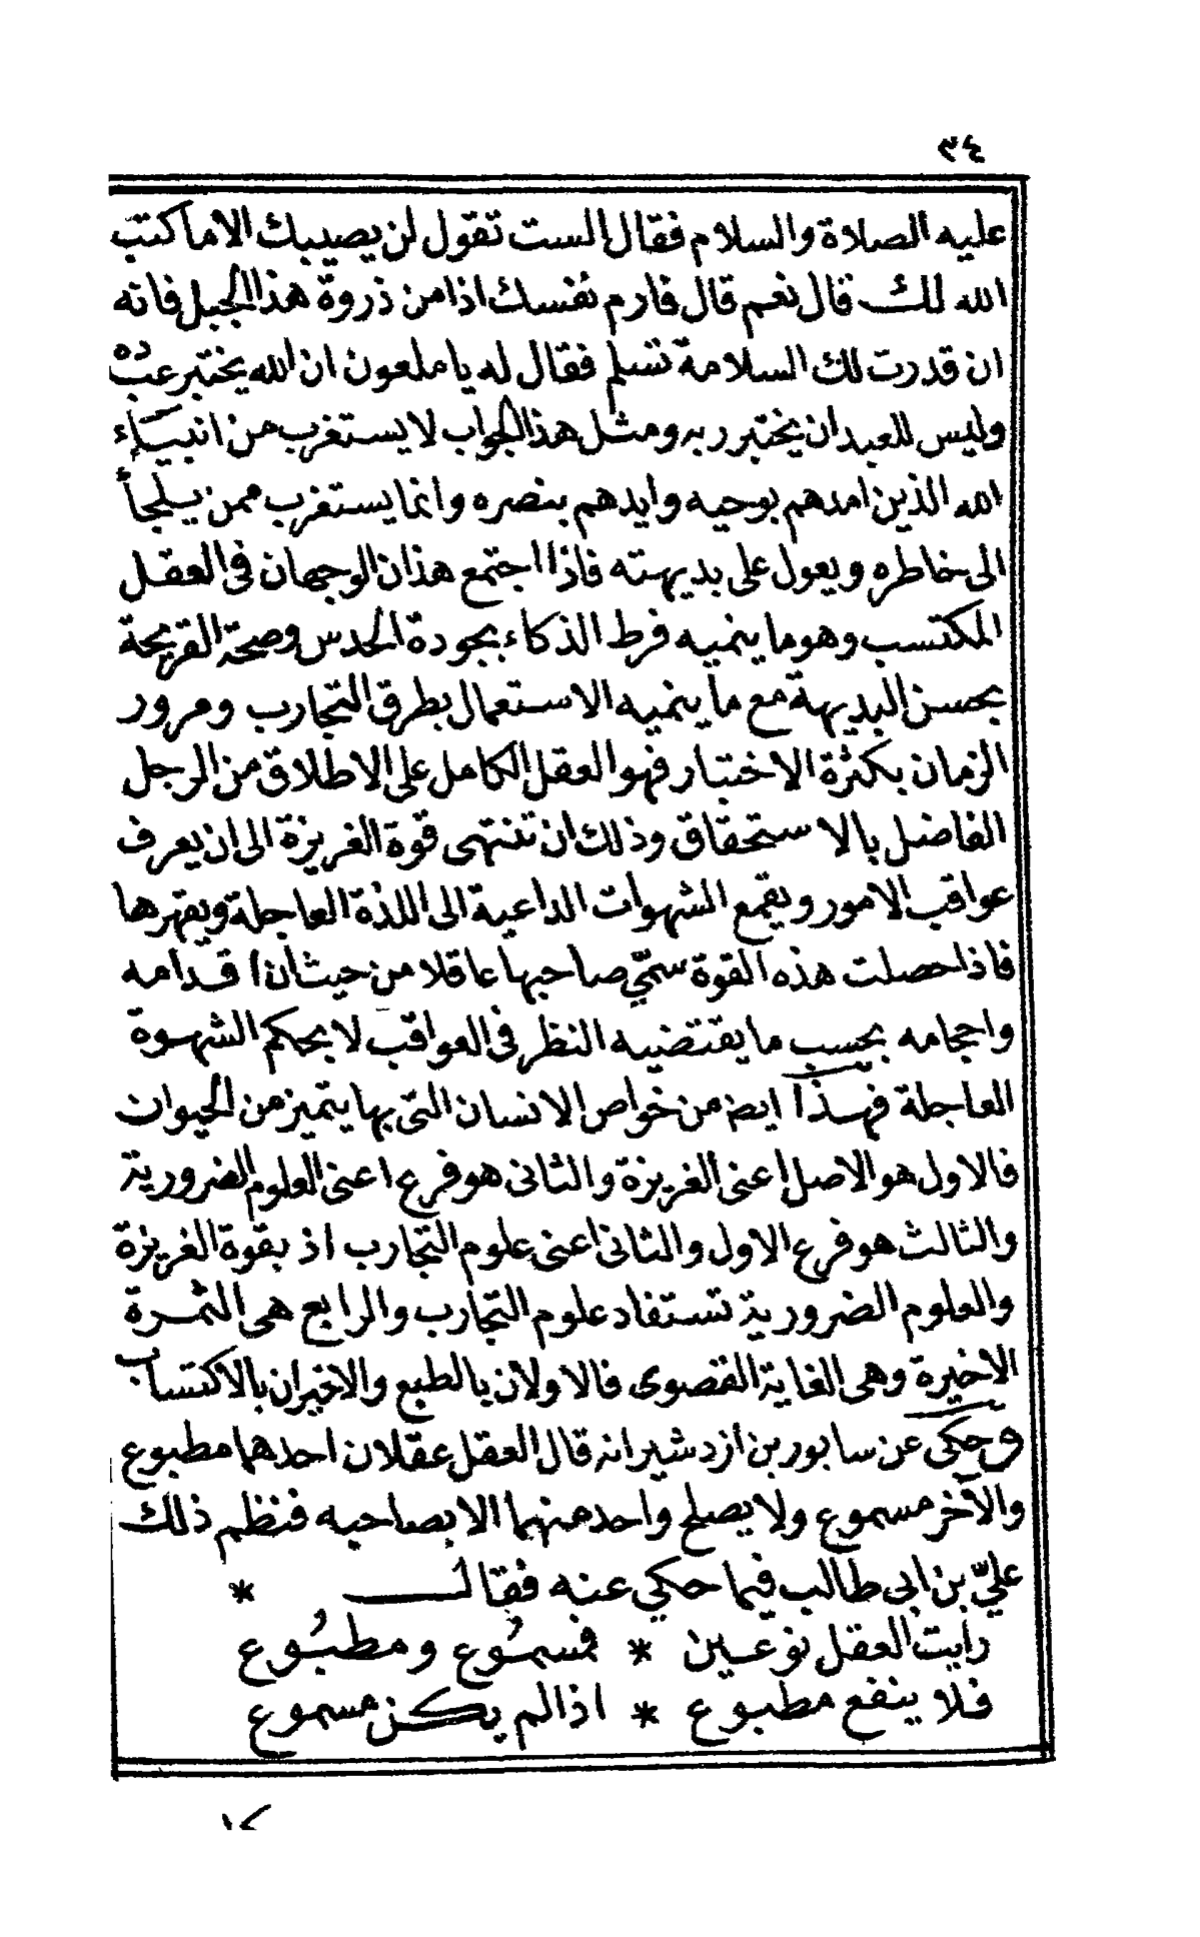 ٣٤
عليه الصلاة والسلام فقال الست تقول لن يصيبك الا ما كتب
الله لك قال نعم قال فارم نفسك اذا من ذروة هذا الجبل فانه
ان قدرت لك السلامة تسلم فقال له يا ملعون ان الله يختبر عبده
وليس للعبد ان يختبر ربه ومثل هذا الجواب لا يستغرب من انبياء
الله الذين امدهم بوحيه وايدهم بنصره وانما يستغرب ممن يلجأ
الى خاطره ويعول على بديهته فاذا اجتمع هذان الوجهان في العقل
المكتسب وهو ما ينميه فرط الذكاء بجودة الحدس وصحة القريحة
بحسن البديهة مع ما ينميه الاستعمال بطرق التجارب ومرور
الزمان بكثرة الاختبار فهو العقل الكامل على الاطلاق من الرجل
الفاضل بالاستحقاق وذلك ان تنتهى قوة الغريزة الى ان يعرف
عواقب الامور ويقمع الشهوات الداعية الى اللذة العاجلة ويقهرها
فاذا حصلت هذه القوة سمّي صاحبها عاقلا من حيث ان اقدامه
واحجامه بحسب ما يقتضيه النظر في العواقب لا بحكم الشهوة
العاجلة فهذا ايضا من خواص الانسان التى بها يتميز من الحيوان
فالاول هو الاصل اعنى الغريزة والثانى هو فرع اعنى العلوم الضرورية
والثالث هو فرع الاول والثانى اعنى علوم التجارب اذ بقوة الغريزة
والعلوم الضرورية تستفاد علوم التجارب والرابع هى الثمرة
الاخيرة وهى الغاية القصوى فالاولان بالطبع والاخيران بالاكتساب
وحكى عن سابور بن ازدشير انه قال العقل عقلان احدهما مطبوع
والآخر مسموع ولا يصلح واحد منهما الا بصاحبه فنظم ذلك
عليّ بن ابى طالب فيما حكي عنه فقال *
رايت العقل نوعين * فمسمُوع ومطبُوع
فلا ينفع مطبوع * اذا لم يكن مسموع
كا